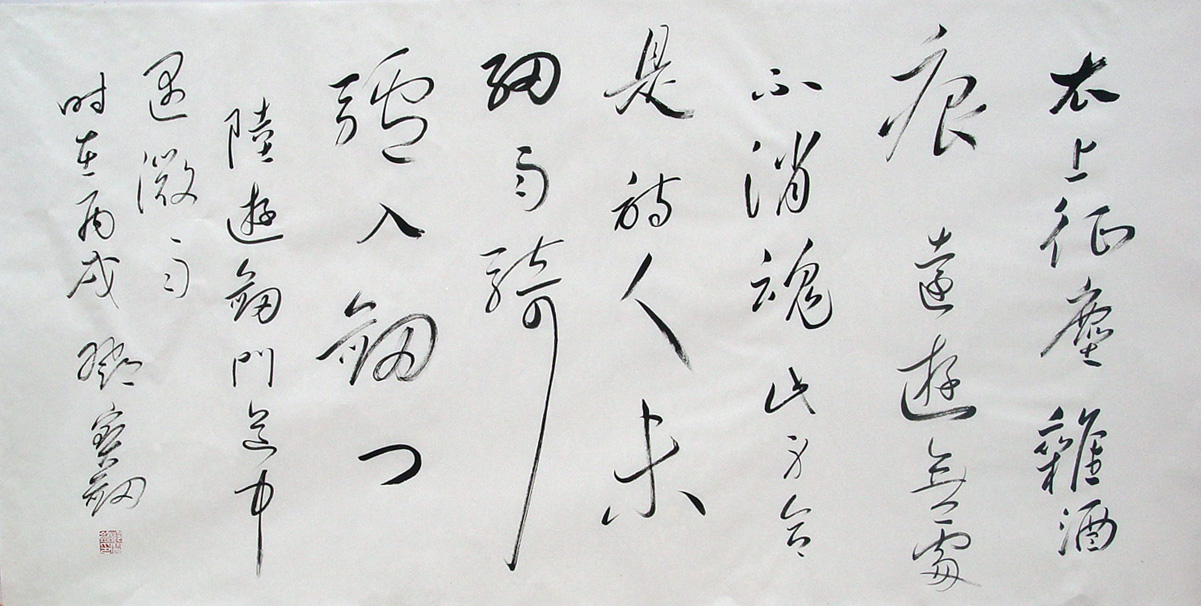 衣上征塵雜酒
痕遠遊無處
不消魂此身合
是詩人未
細雨騎
驢入劍門
陸遊劍門道中
遇微雨
时在丙戌鄧寶劍